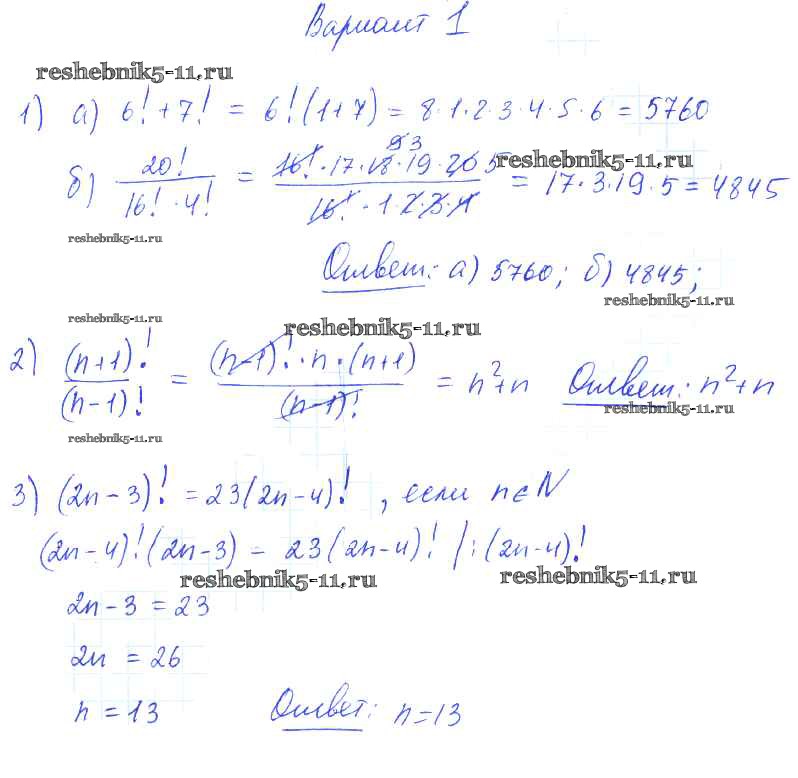 Вариант 1
reshebnik5-11.ru
1) а) 6! + 7! = 6!(1+7) = 8·1·2·3·4·5·6 = 5760
9 3
б) 20! / 16!·4! = 16!·17·18·19·20 5 / 16!·1·2·3·4 = 17·3·19·5 = 4845
reshebnik5-11.ru
reshebnik5-11.ru
Ответ: а) 5760; б) 4845;
reshebnik5-11.ru
reshebnik5-11.ru
reshebnik5-11.ru
2) (n+1)! / (n-1)! = (n-1)!·n·(n+1) / (n-1)! = n²+n Ответ: n²+n
reshebnik5-11.ru
reshebnik5-11.ru
3) (2n-3)! = 23(2n-4)!, если n∈N
(2n-4)!(2n-3) = 23(2n-4)! /:(2n-4)!
reshebnik5-11.ru
reshebnik5-11.ru
2n-3 = 23
2n = 26
n = 13 Ответ: n=13